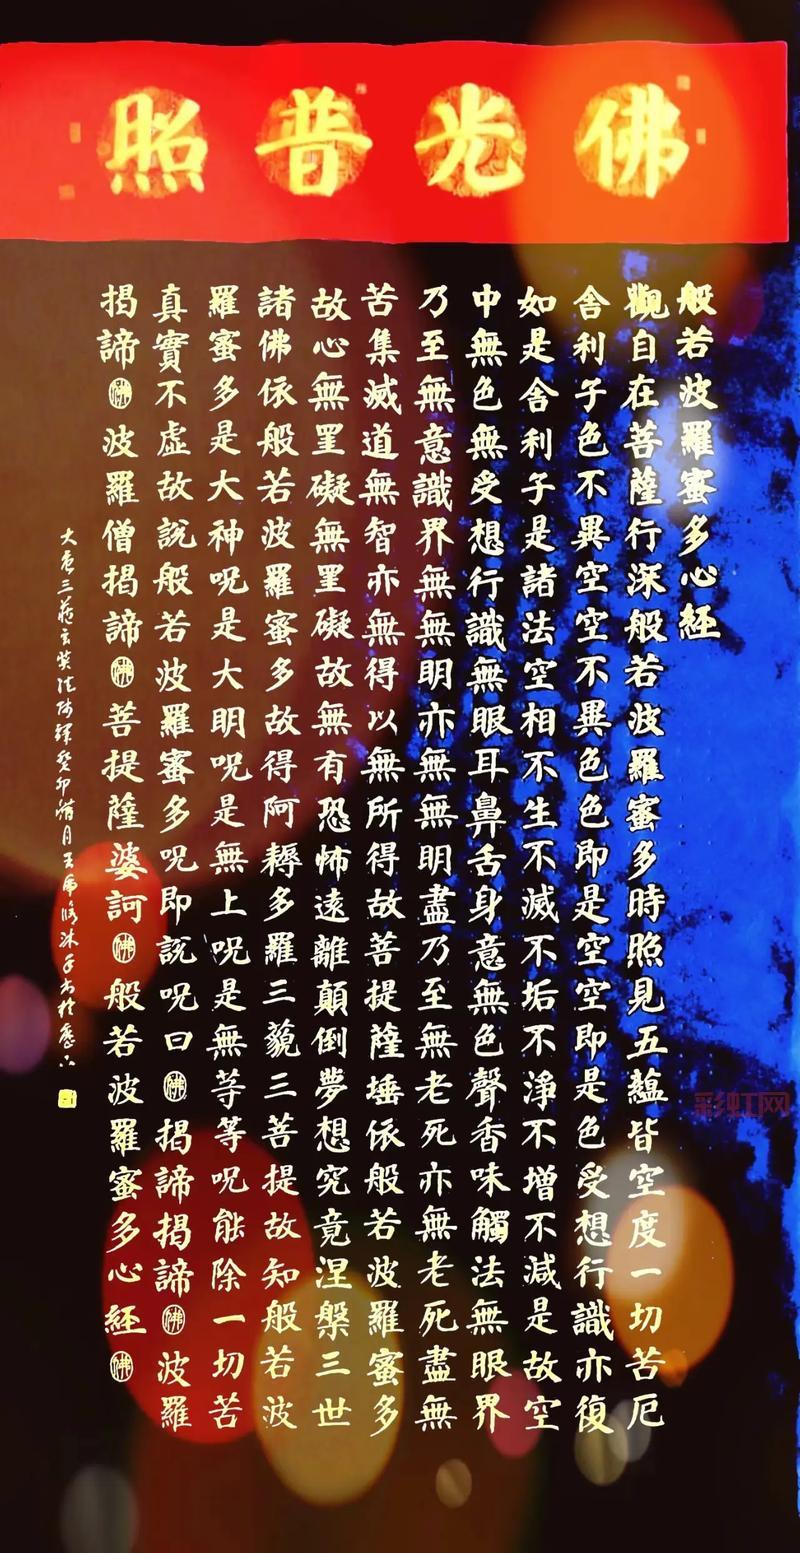 佛光普照
般若波羅蜜多心経
觀自在菩薩行深般若波羅蜜多時照見五蘊皆空度一切苦厄
舍利子色不異空空不異色色即是空空即是色受想行識亦復
如是舍利子是諸法空相不生不滅不垢不淨不增不減是故空
中無色無受想行識無眼耳鼻舌身意無色聲香味觸法無眼界
乃至無意識界無無明亦無無明盡乃至無老死亦無老死盡無
苦集滅道無智亦無得以無所得故菩提薩埵依般若波羅蜜多
故心無罣礙無罣礙故無有恐怖遠離顛倒夢想究竟涅槃三世
諸佛依般若波羅蜜多故得阿耨多羅三藐三菩提故知般若波
羅蜜多是大神呪是大明呪是無上呪是無等等呪能除一切苦
真實不虛故說般若波羅蜜多呪即說呪曰佛揭諦揭諦佛波羅
揭諦佛波羅僧揭諦佛菩提薩婆訶佛般若波羅蜜多心経佛
大唐三藏玄奘法師譯癸卯月沐手书於
彩虹网